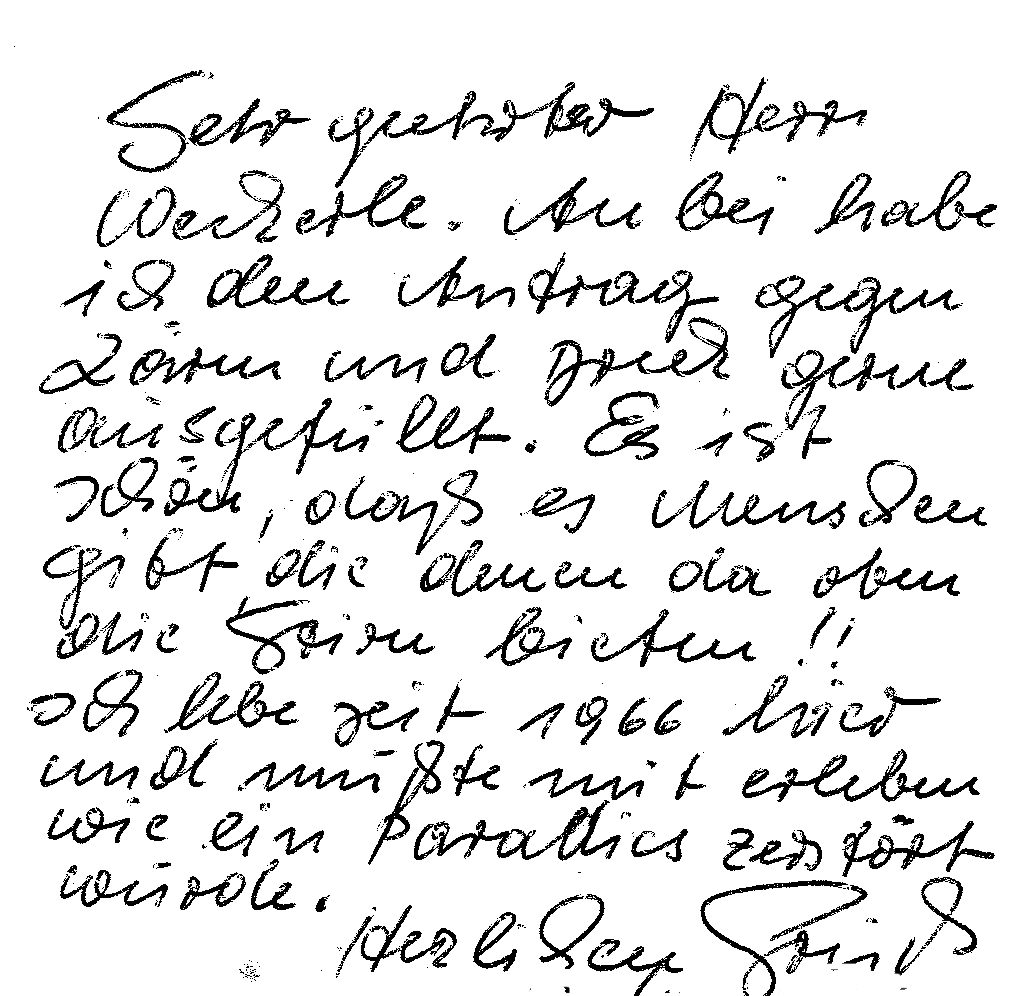 Sehr geehrter Herr
Weckerle. Anbei habe
ich den Antrag gegen
Lärm und Dreck gerne
ausgefüllt. Es ist
schön, daß es Menschen
gibt, die denen da oben
die Stirn bieten!!
Ich lebe seit 1966 hier
und mußte mit erleben
wie ein Paradies zerstört
wurde.
Herzlichen Gruß